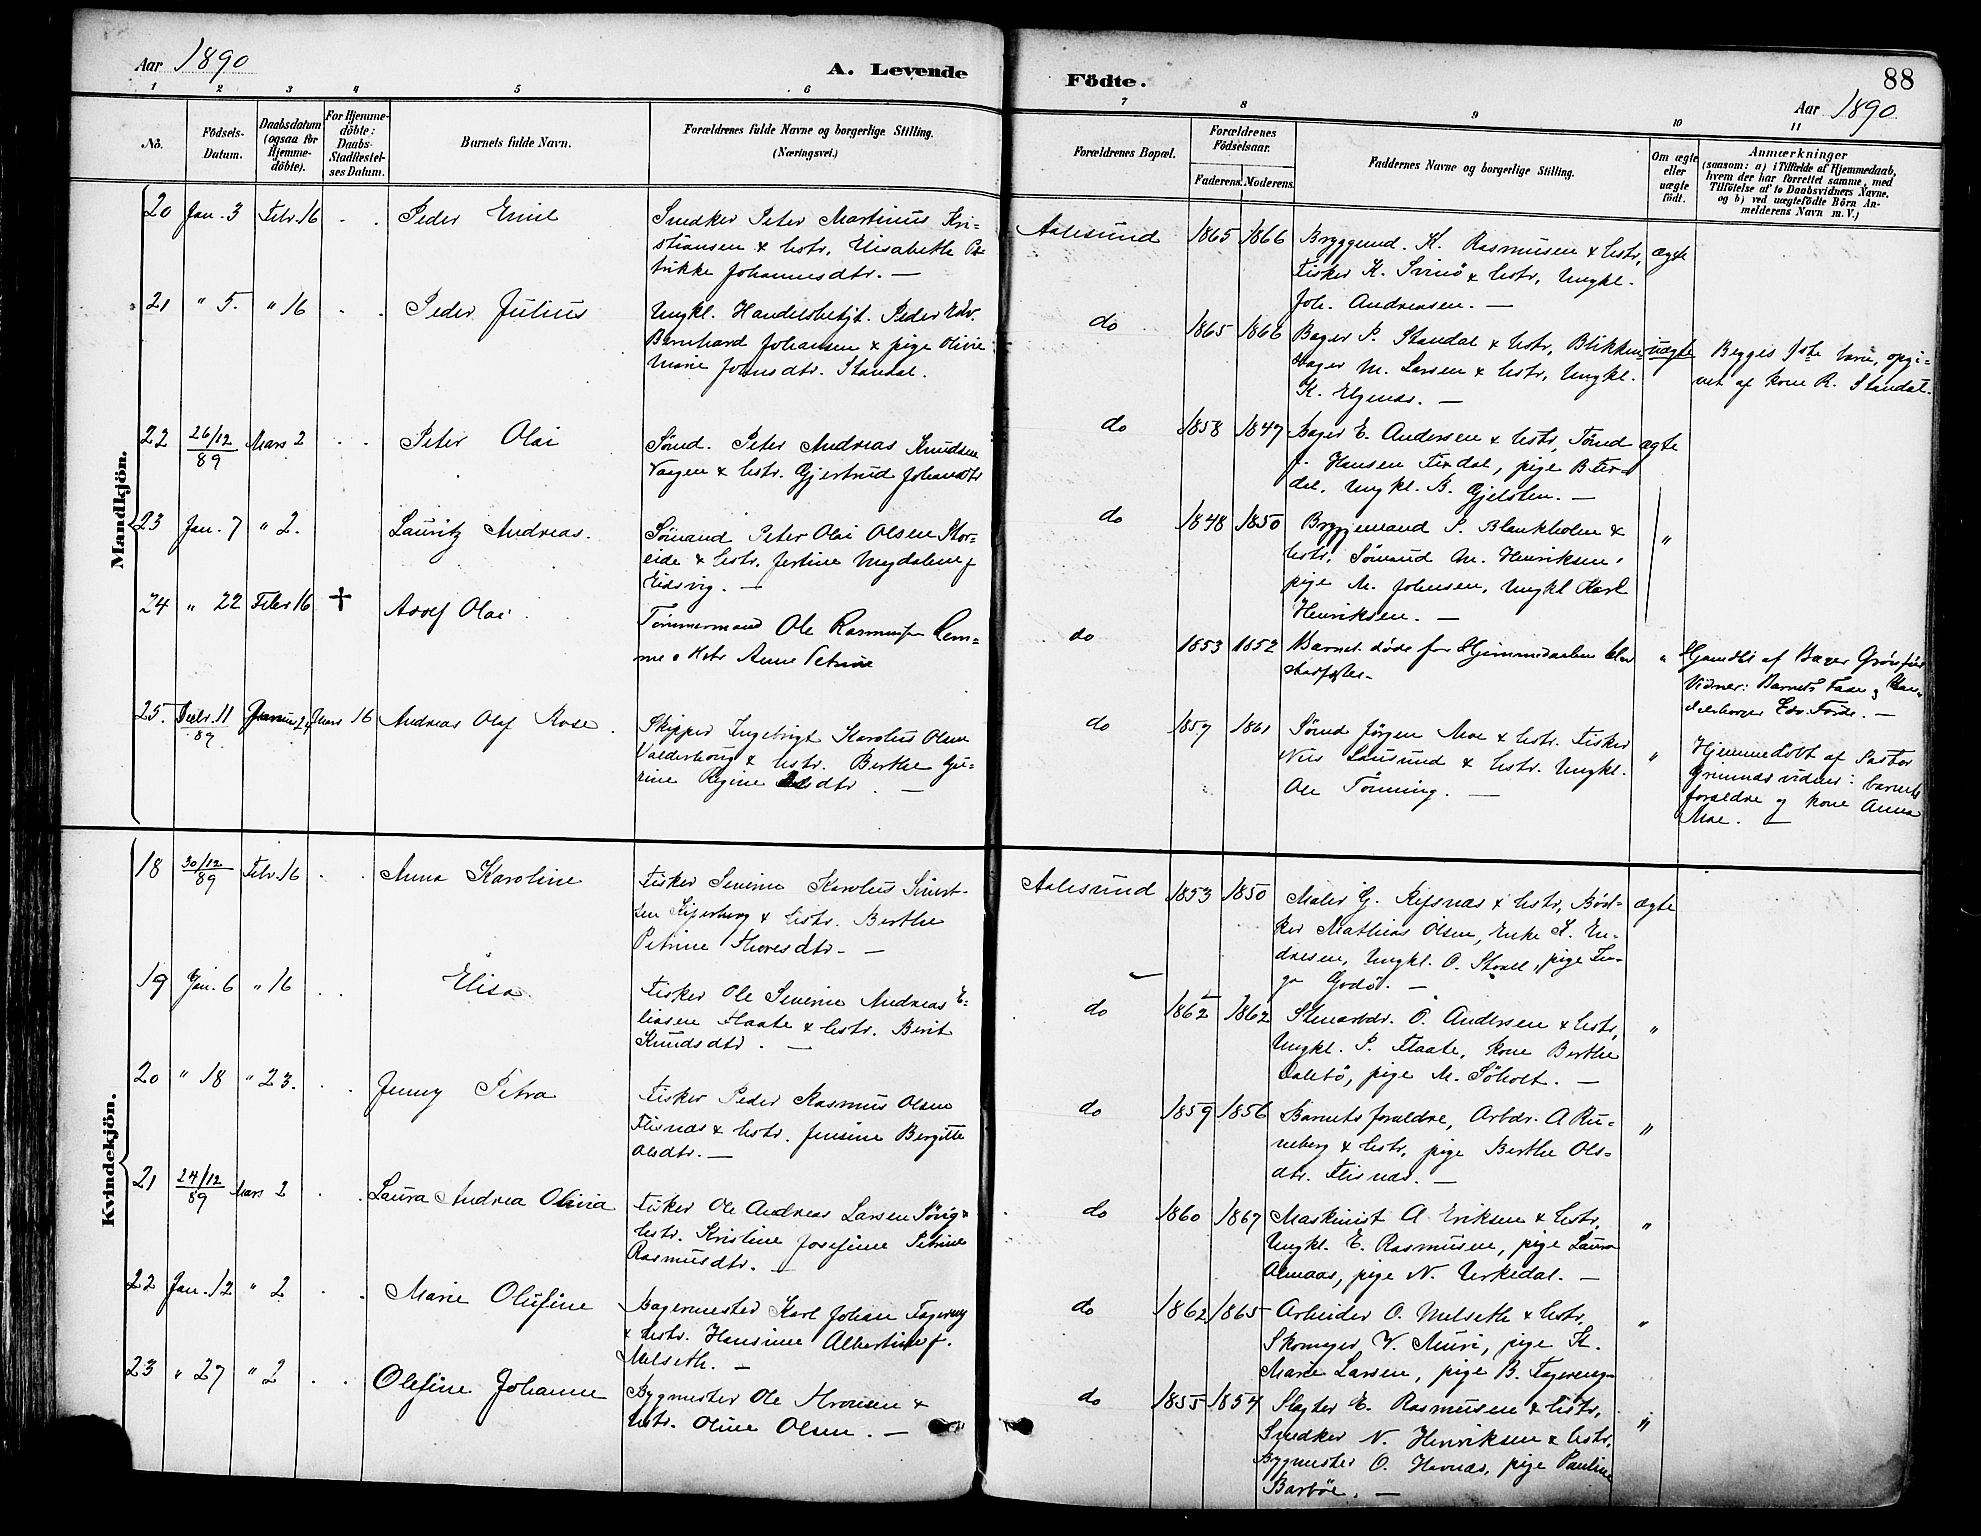 Aar 1890
A. Levende
Födte.
88
Aar 1890
1 2 3 4 5 6 7 8 9 10 11
No.
Födsels-
Datum.
Daabsdatum
(ogsaa for
Hjemme-
döbte).
For Hjemme-
döbte:
Daabs-
Stadfæstel-
ses Datum.
Barnets fulde Navn.
Forældrenes fulde Navne og borgerlige Stilling.
(Næringsvei.)
Forældrenes Bopæl.
Forældrenes
Födselsaar.
Faderens. Moderens.
Faddernes Navne og borgerlige Stilling.
Om ægte
eller
uægte
født.
Anmærkninger
(saasom: a) i Tilfælde af Hjemmedaab,
hvem der har forrettet samme, med
Tilføielse af to Daabsvidners Navne,
og b) ved uægtefødte Börn An-
melderens Navn m. V.)
Mandkjön.
20 Jan. 3 Febr. 16 Peder Emil
Snedker Peter Martinus Kri-
stiansen & hstr. Elisabeth Pe-
trikke Johannesdtr. —
Aalesund 1865 1866
Bryggemd. K. Rasmusen & hstr,
Fisker K. Svinö & hstr, Ungkl.
Joh. Andreasen. —
ægte
21 " 5. " 16 Peder Julius
Ungkl. Handelsbetjt. Peder Edv.
Bernhard Johansen & pige Olivie
Marie Johnsdtr. Standal.
do 1865 1866
Bager P. Standal & hstr, Blikken-
slager M. Larsen & hstr, Ungkl.
K. Elgenæs. —
uægte
Begges 1ste barn, opgi-
vet af kone R. Standal.
22 26/12 89 Mars 2 Peter Olai
Sømd. Peter Andreas Knudsen
Vaagen & hstr. Gjertrud Johansdtr
do 1858 1847
Bager E. Andersen & hstr, Tømd
J. Hansen Fixdal, pige B. Fix-
dal, Ungkl. B. Gjelsten. —
ægte
23 Jan. 7 " 2. Lauritz Andreas.
Sømand Peter Olai Olsen Stor-
eide & hstr. Jertine Magdalene f
Eidsvig. —
do 1848 1850
Bryggemand P. Blankholm &
hstr, Sømand M. Henriksen,
pige M. Johnsen, Ungkl Karl
Henriksen. —
"
24 " 22 Febr 16 † Adolf Olai
Tømmermand Ole Rasmussen Rem-
me & Hstr Anne Petrine
do 1853 1852
Barnet døde før Hjemmedaaben blev
stadfæstet.
"
Hjemdbt af Bager Grønfur
Vidner: Barnets Fader og Han-
delsborger Edv. Forde. —
25. Decbr. 11 89 Januar 29 Mars 16 Andreas Olaf Rose.
Skipper Ingebrigt Karolus Olsen
Valderhoug & hstr. Berthe Gu-
rine Regine dtr. —
do 1857 1861
Sømd Jørgen Moe & hstr. Fisker
Nils Lausund & hstr. Ungkl.
Ole Tønning. —
"
Hjemmedöbt af Pastor
Grimnæs vidner: barnets
foraldre og kone Anna
Moe. —
Kvindekjön.
18 30/12 89 Febr. 16 Anna Karoline
Fisker Severin Karolus Sivert-
sen & hstr. Berthe
Petrine Thoresdtr. —
Aalesund 1853 1850
Maler G. Refsnæs & hstr, Bød-
ker Mathias Olsen, Enke J. En-
dresen, Ungkl. O. Skaal, pige In-
ga Godö. —
ægte
19 Jan. 6 " 16 Elisa
Fisker Ole Severin Andreas E-
liasen Flaate & hstr. Berit
Knudsdtr. —
do 1862 1862
Stenarbdr. O. Andersen & hstr,
Ungkl. P. Flaate, kone Berthe
Dalebö, pige M. Söholt. —
"
20 " 18 " 23. Jenny Petra
Fisker Peder Rasmus Olsen
Flisnæs & hstr. Jensine Bergitte
Olsdtr. —
do 1859 1856
Barnets foraldre, Arbdr. A Ru-
neberg & hstr, pige Berthe Ols-
dtr. Flisnæs. —
"
21 24/12 89 Mars 2 Laura Andrea Olivia
Fisker Ole Andreas Larsen Sørig &
hstr. Kristine Josefine Petrine
Rasmusdtr. —
do 1860 1867
Maskinist A Eriksen & hstr,
Ungkl. E. Rasmusen, pige Laura
Almaas, pige N. Urkedal. —
"
22 Jan. 12 " 2 Marie Olufine
Bagermester Karl Johan Fagereng
& hstr. Hansine Albertine f.
Melseth. —
do 1862 1865
Arbeider O. Melseth & hstr,
Skomager V. Muri, pige K.
Marie Larsen, pige B. Fagereng.
"
23 " 27 " 2 Olefine Johanne
Bygmester Ole Thronsen &
hstr. Oline Olsen. —
do 1855 1854
Slagter E. Rasmusen & hstr,
Snedker N. Henriksen & hstr,
Bygmester O. Havnæs, pige Pauline
Barböe. —
"